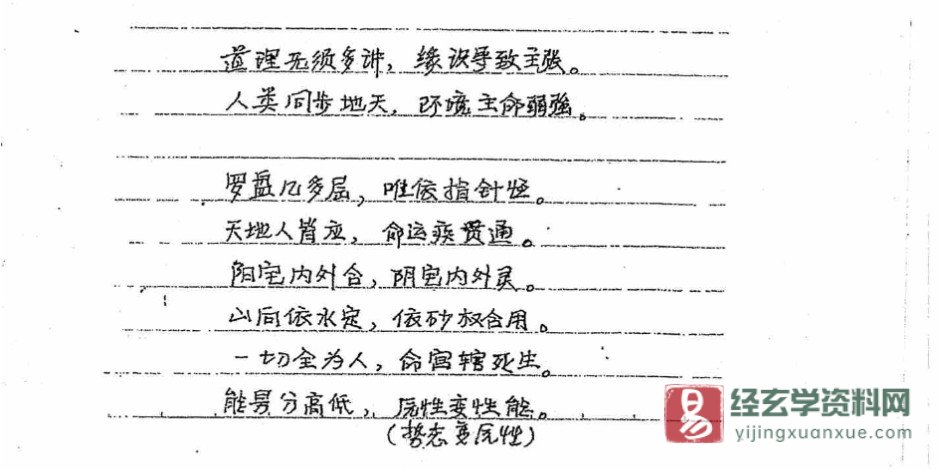 道理无须多讲，缘识导致主张。
人类同步地天，环境主命弱强。
罗盘几多层，唯依指针恒。
天地人皆应，命运疾贯通。
阳宅内外合，阴宅内外灵。
山向依水定，依砂权合用。
一切全为人，命宫辖死生。
能量分高低，属性变性能。
(势态变属性)
易
经玄学资料网
yijingxuanxue.com